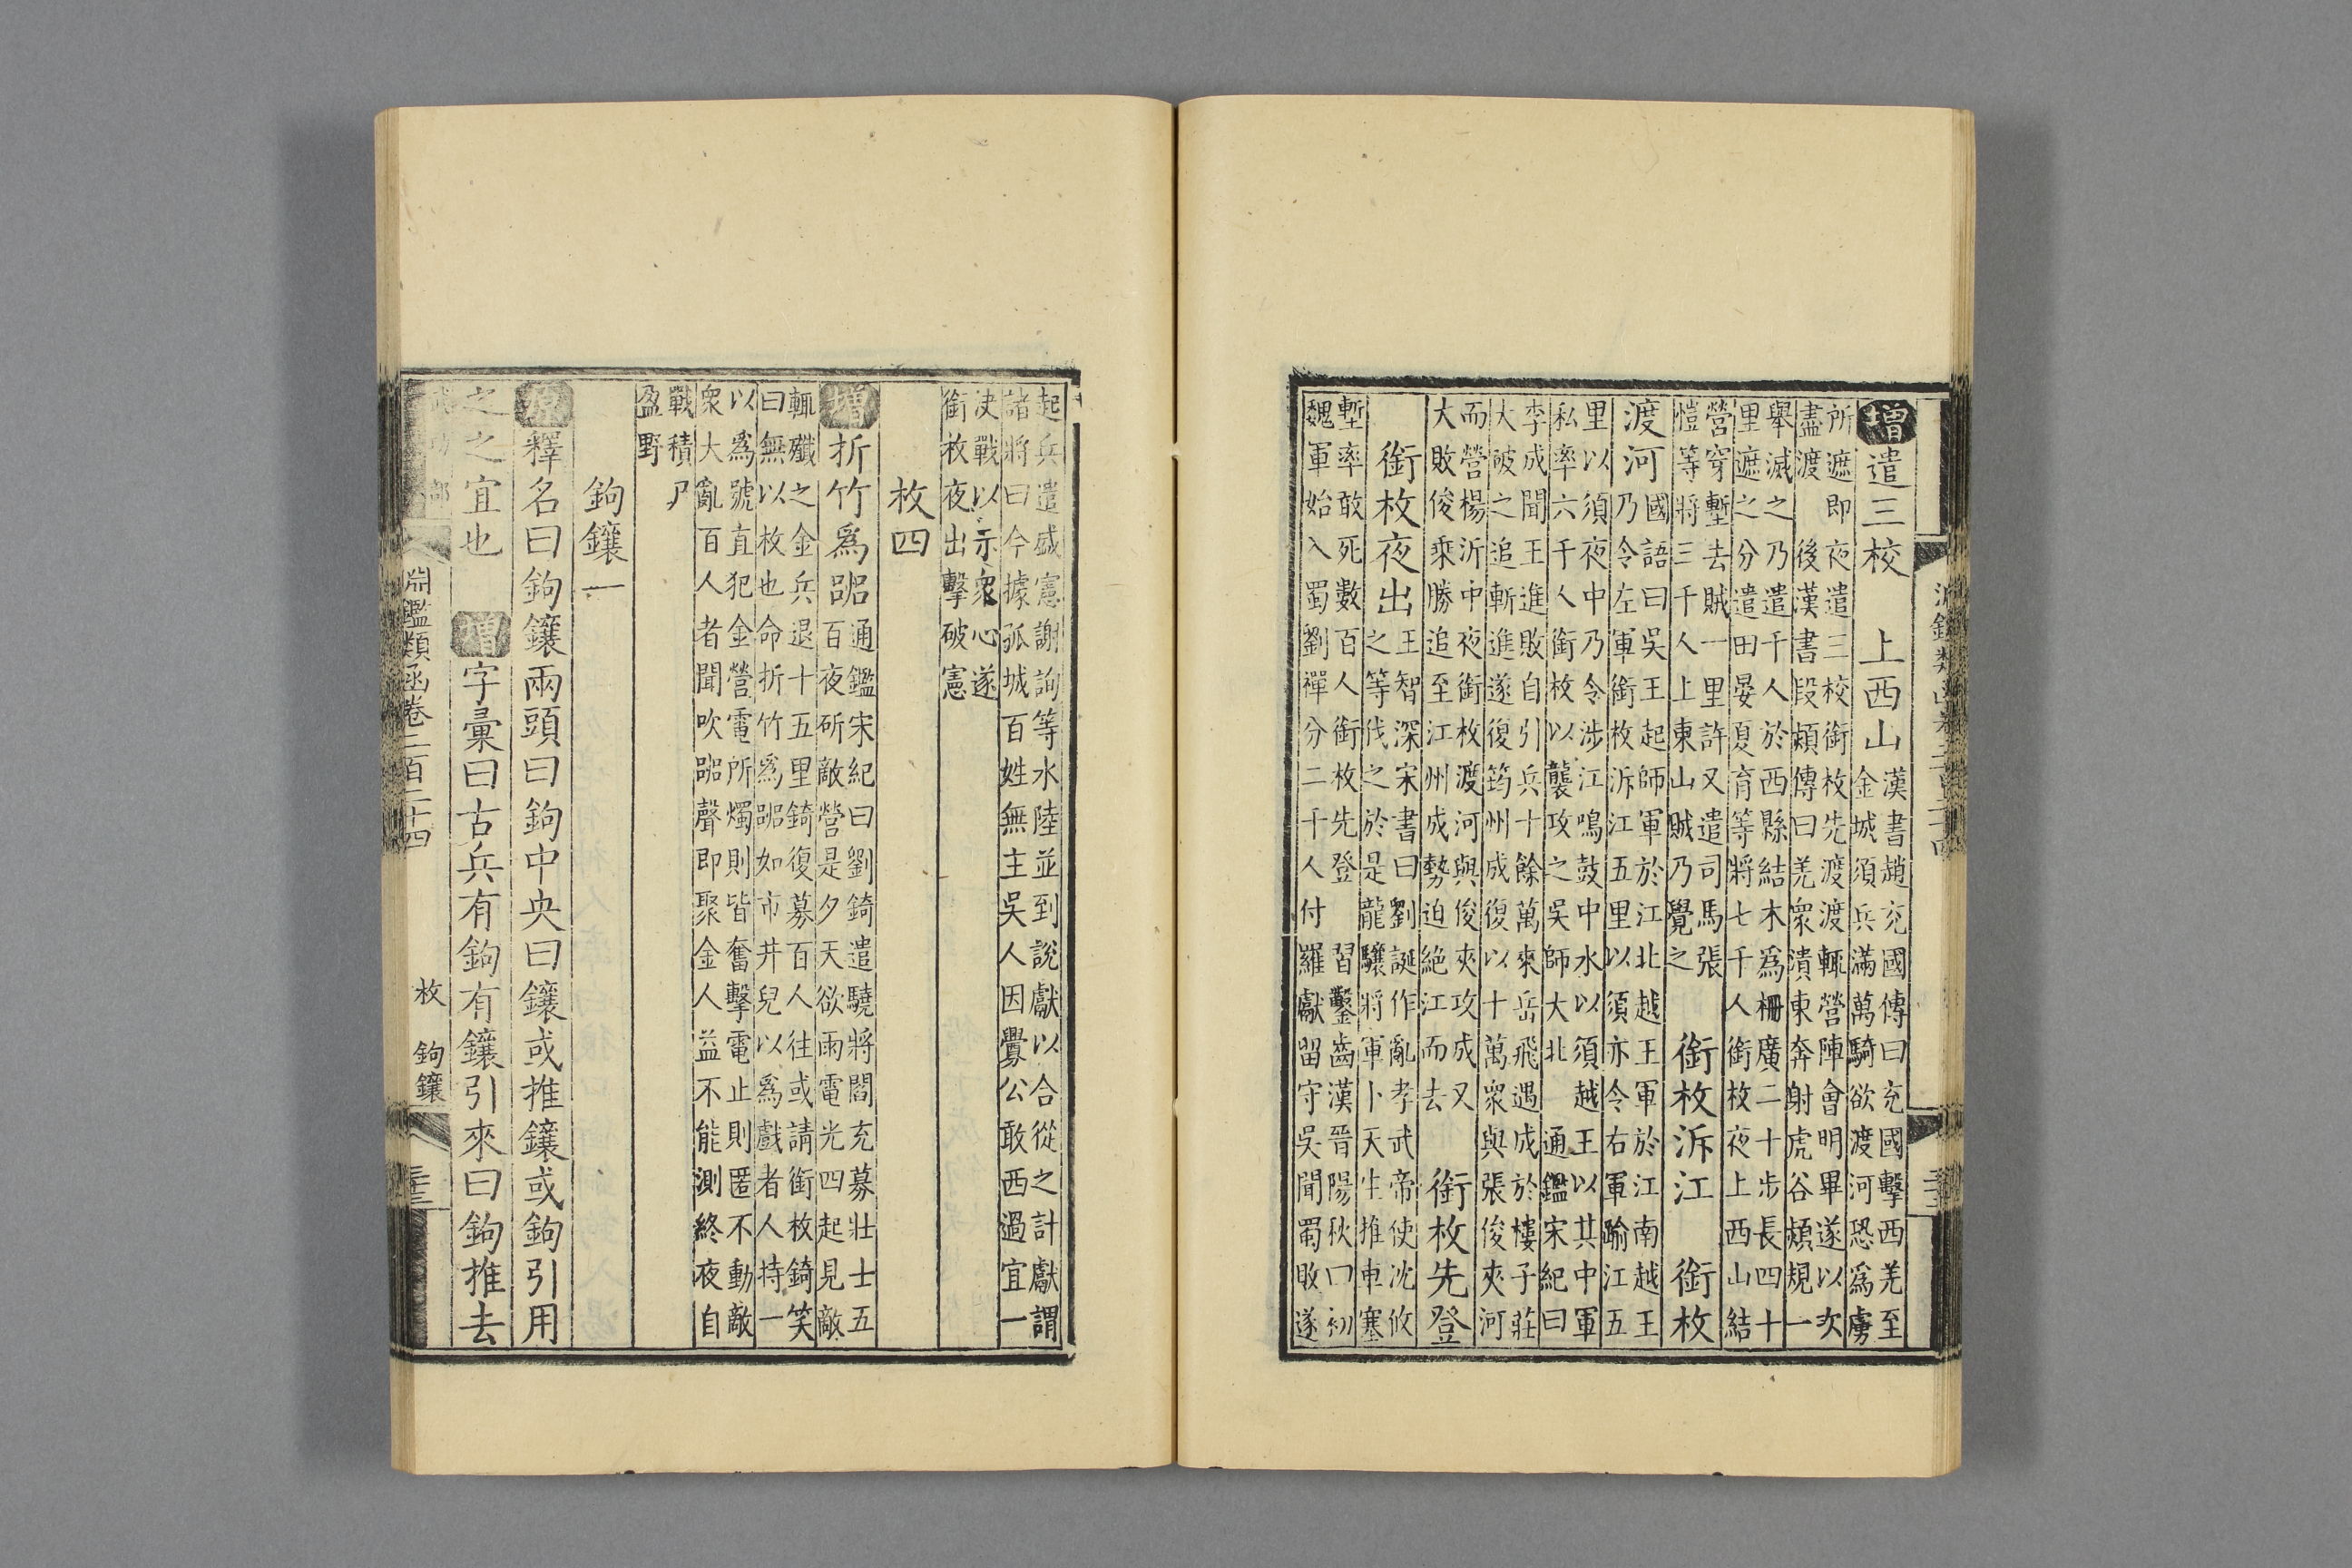 淵鑑類函卷二百二十四
增遣三校　上西山
漢書趙充國傳曰充國擊西羌至
金城須兵滿萬騎欲渡河恐爲虜
所遮即夜遣三校銜枚先渡渡輒營陣會明畢遂以次
盡渡　後漢書段熲傳曰羌衆潰東奔射虎谷熲規一
舉滅之乃遣千人於西縣結木爲柵廣二十步長四十
里遮之分遣田晏夏育等將七千人銜枚夜上西山結
營穿塹去賊一里許又遣司馬張
愷等將三千人上東山賊乃覺之
銜枚泝江　銜枚
渡河
國語曰吳王起師軍於江北越王軍於江南越王
乃令左軍銜枚泝江五里以須亦令右軍踰江五
里以須夜中乃令涉江鳴鼓中水以須越王以其中軍
私率六千人銜枚以襲攻之吳師大北　通鑑宋紀曰
李成聞王進敗自引兵十餘萬來岳飛遇成於樓子莊
大破之追斬進遂復筠州成復以十萬衆與張俊夾河
而營楊沂中夜銜枚渡河與俊夾攻成又
大敗俊乘勝追至江州成勢迫絕江而去
銜枚先登
銜枚夜出
王智深宋書曰劉誕作亂孝武帝使沈攸
之等伐之於是龍驤將軍卜天生推車塞
塹率敢死數百人銜枚先登　習鑿齒漢晉陽秋曰初
魏軍始入蜀劉禪分二千人付羅獻留守吳聞蜀敗遂
起兵遣盛憲謝詢等水陸並到說獻以合從之計獻謂
諸將曰今據孤城百姓無主吳人因釁公敢西過宜一
决戰以示衆心遂
銜枚夜出擊破憲
枚四
增折竹爲嘂
通鑑宋紀曰劉錡遣驍將閻充募壯士五
百夜斫敵營是夕天欲雨電光四起見敵
輒殲之金兵退十五里錡復募百人往或請銜枚錡笑
曰無以枚也命折竹爲嘂如市井兒以爲戲者人持一
以爲號直犯金營電所燭則皆奮擊電止則匿不動敵
衆大亂百人者聞吹嘂聲即聚金人益不能測終夜自
戰積尸
盈野
鉤鑲一
原釋名曰鉤鑲兩頭曰鉤中央曰鑲或推鑲或鉤引用
之之宜也　增字彙曰古兵有鉤有鑲引來曰鉤推去
武功部　淵鑑類函卷二百二十四　枚　鉤鑲　三十三